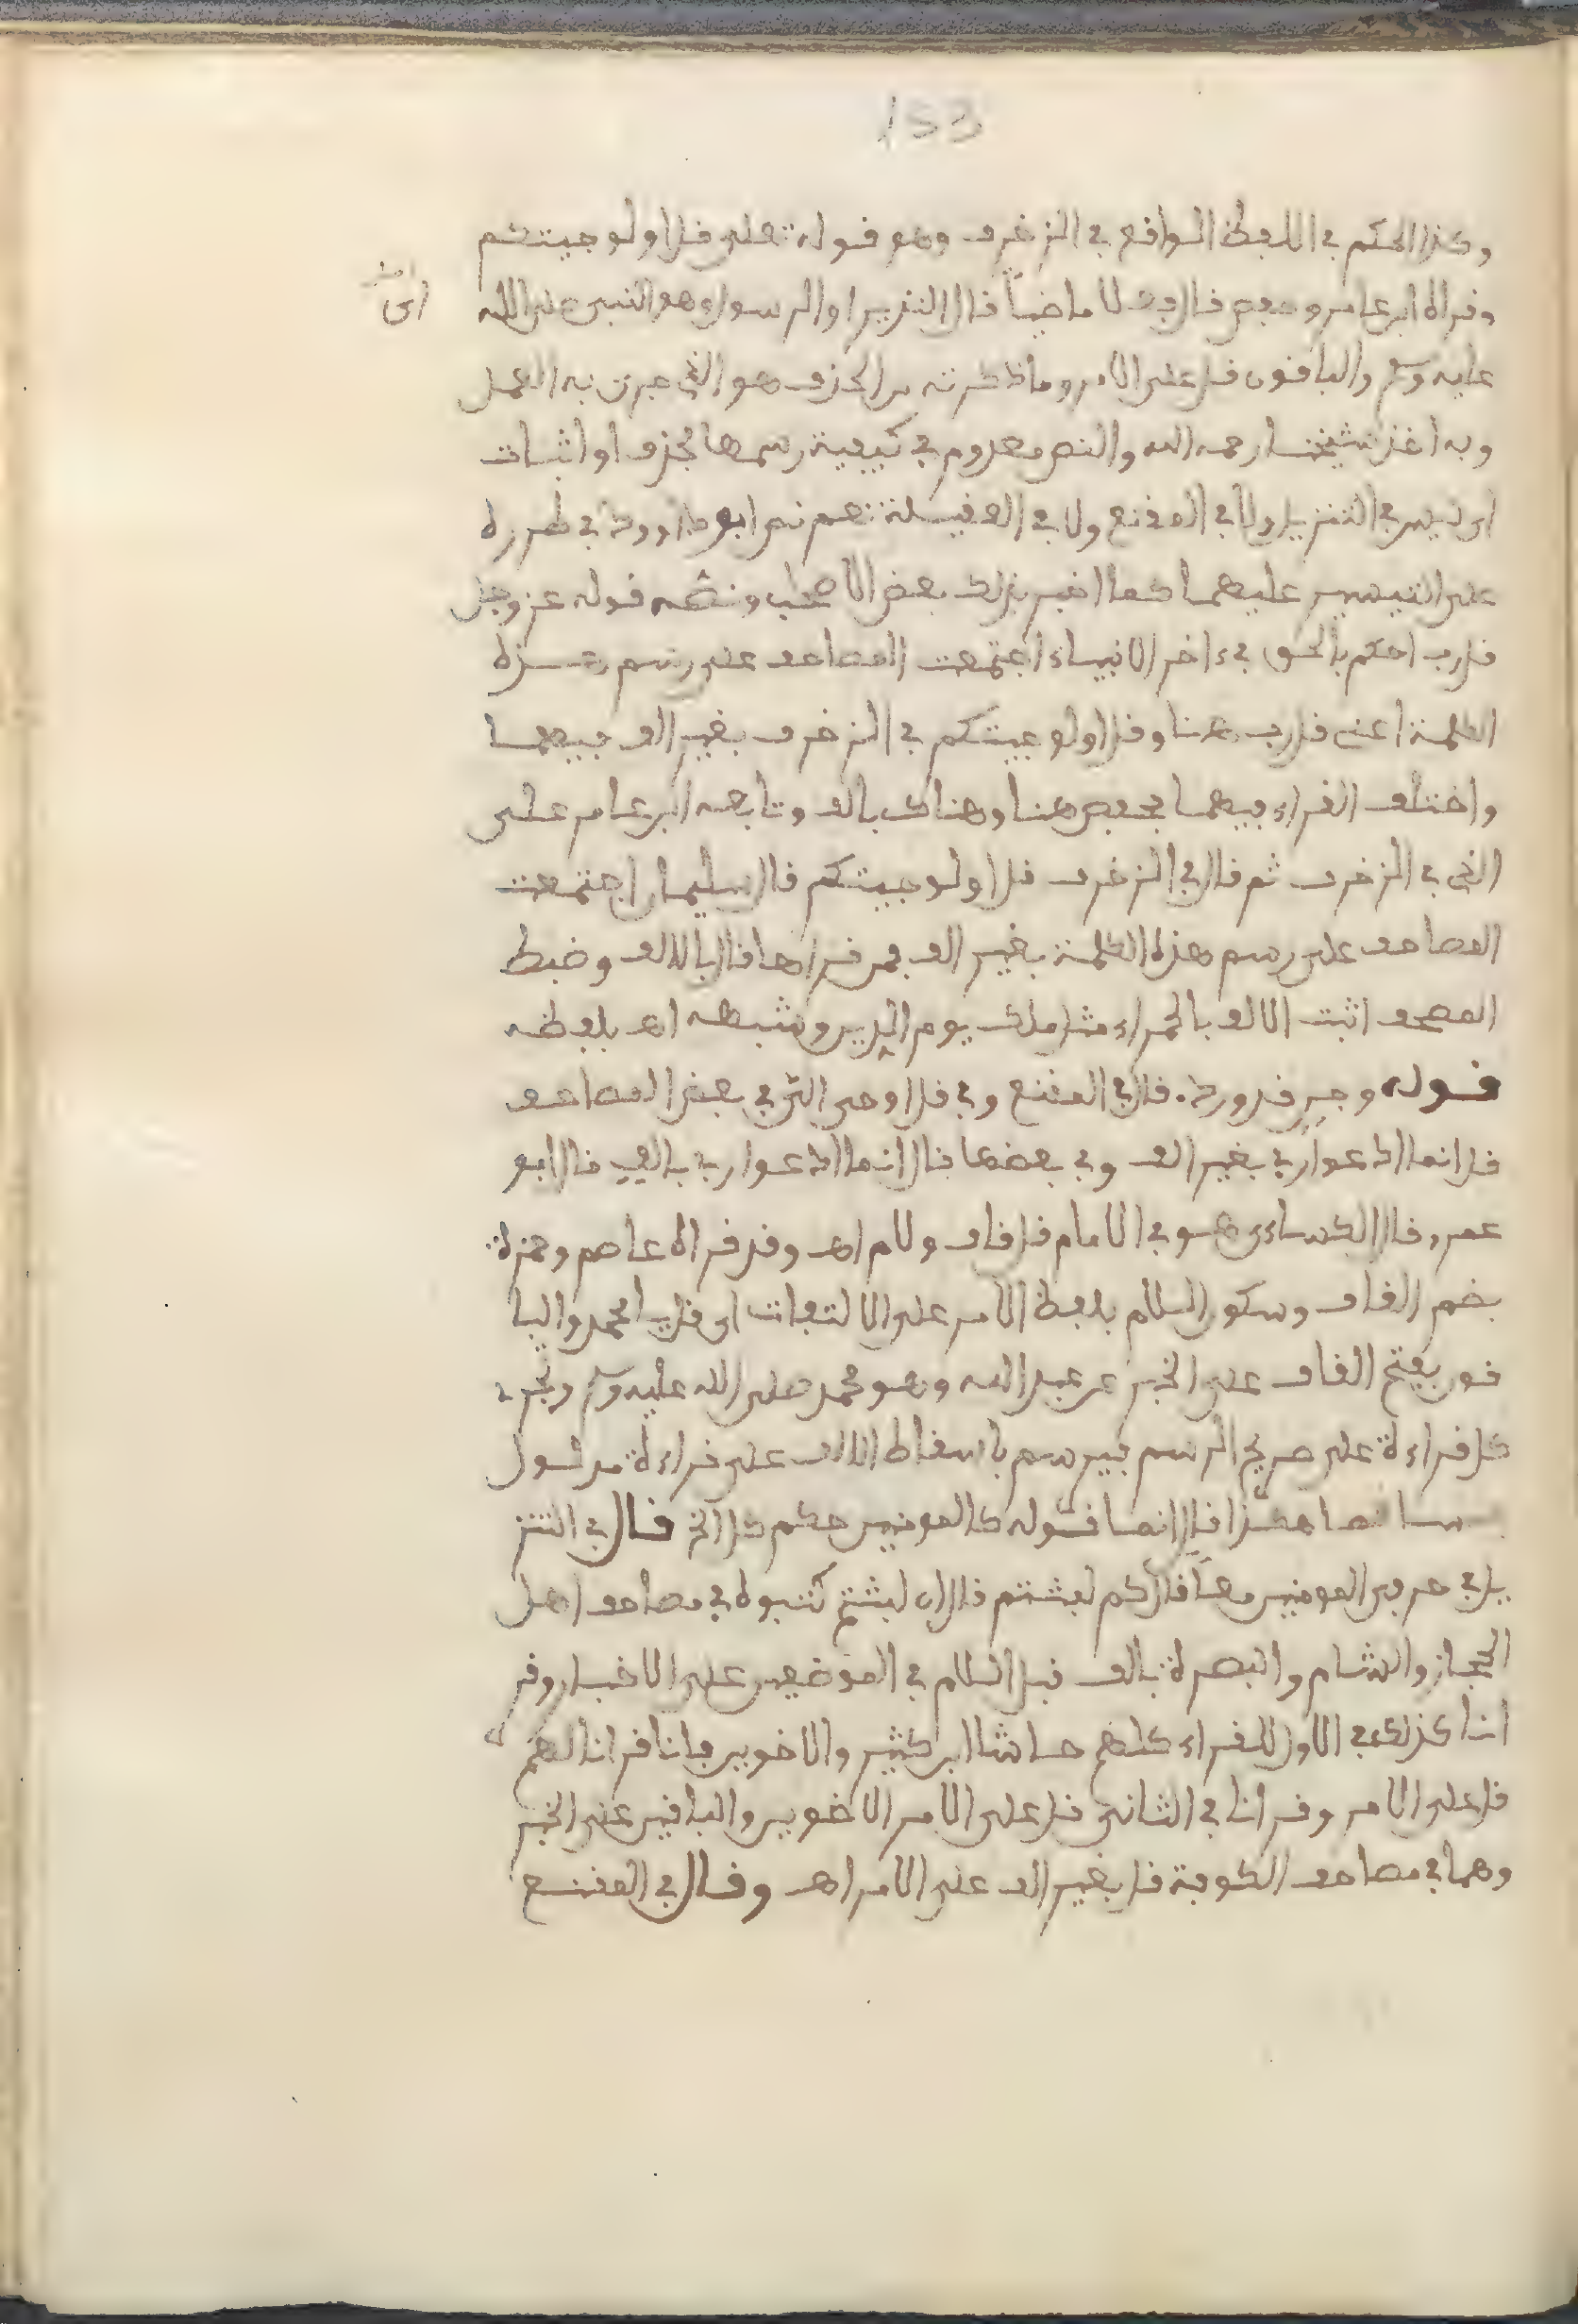 133
وكذا الحكم في اللفظ الواقع في الزخرف وهو قوله تعلى قل اولو جيتكم
وقراه ابن عامر وحفص قال فعلا ماضيا قال النذير او الرسول وهو النبي صلى الله
اى
عليه وسلم والباقون قل على الامر وما ذكرته من الحذف هو الذي جرى به العمل
وبه اخذ شيخنا رحمه الله والنص معدوم في كيفية رسمها بحذف او اثبات
اى ليس في التنزيل ولا في المقنع ولا في العقيلة نعم نص ابو داوود في طرره
على التبيين عليهما كما اخبر بذلك بعض الاصحاب ونصه قوله عز وجل
قل رب احكم بالحق في ءاخر الانبياء اجتمعت المصاحف على رسم هذه
الكلمة اعنى قل رب هنا وقل اولو جيتكم في الزخرف بغير الف فيهما
واختلف القراء فيهما فحفص هنا وهناك بالف وتابعه ابن عامر على
الذي في الزخرف ثم قال في الزخرف قل اولو جيتكم قال سليمان اجتمعت
المصاحف على رسم هذه الكلمة بغير الف فمن قراها قال بالالف وضبط
المصحف اثبت الالف بالحمراء مثل ملك يوم الدين وشبهه اهـ بلفظه
قوله وجن قد ورد. قال في المقنع وفي قل اوحى الى في بعض المصاحف
قل انما ادعوا ربي بغير الف وفي بعضها قال انما ادعوا ربي بالف قال ابو
عمرو قال الكساءى هو في الامام قل قاف ولام اهـ وقد قراه عاصم وحمزة
بضم القاف وسكون اللام بلفظ الامر على الالتفات اى قل يا محمد والبا
قون بفتح القاف على الخبر عن عبد الله وهو محمد صلى الله عليه وسلم وتجرى
كل قراءة على صريح الرسم فيرسم باسقاط الالف على قراءة مدلول
هكذا قل انما قوله كالمومنين حكم كل الخ قال في التنز
يل في حرفى المومنين معا قال كم لبثتم قال ان لبثتم كتبوه في مصاحف اهل
الحجاز والشام والبصرة بالف قبل اللام في الموضعين على الاخبار وقر
انا كذلك في الاول للقراء كلهم حاشا ابن كثير والاخوين فانا قرانا لهم
قل على الامر وقرانا في الثانى قل على الامر للاخوين والباقين على الخبر
وهما في مصاحف الكوفة قل بغير الف على الامر اهـ وقال في المقنع